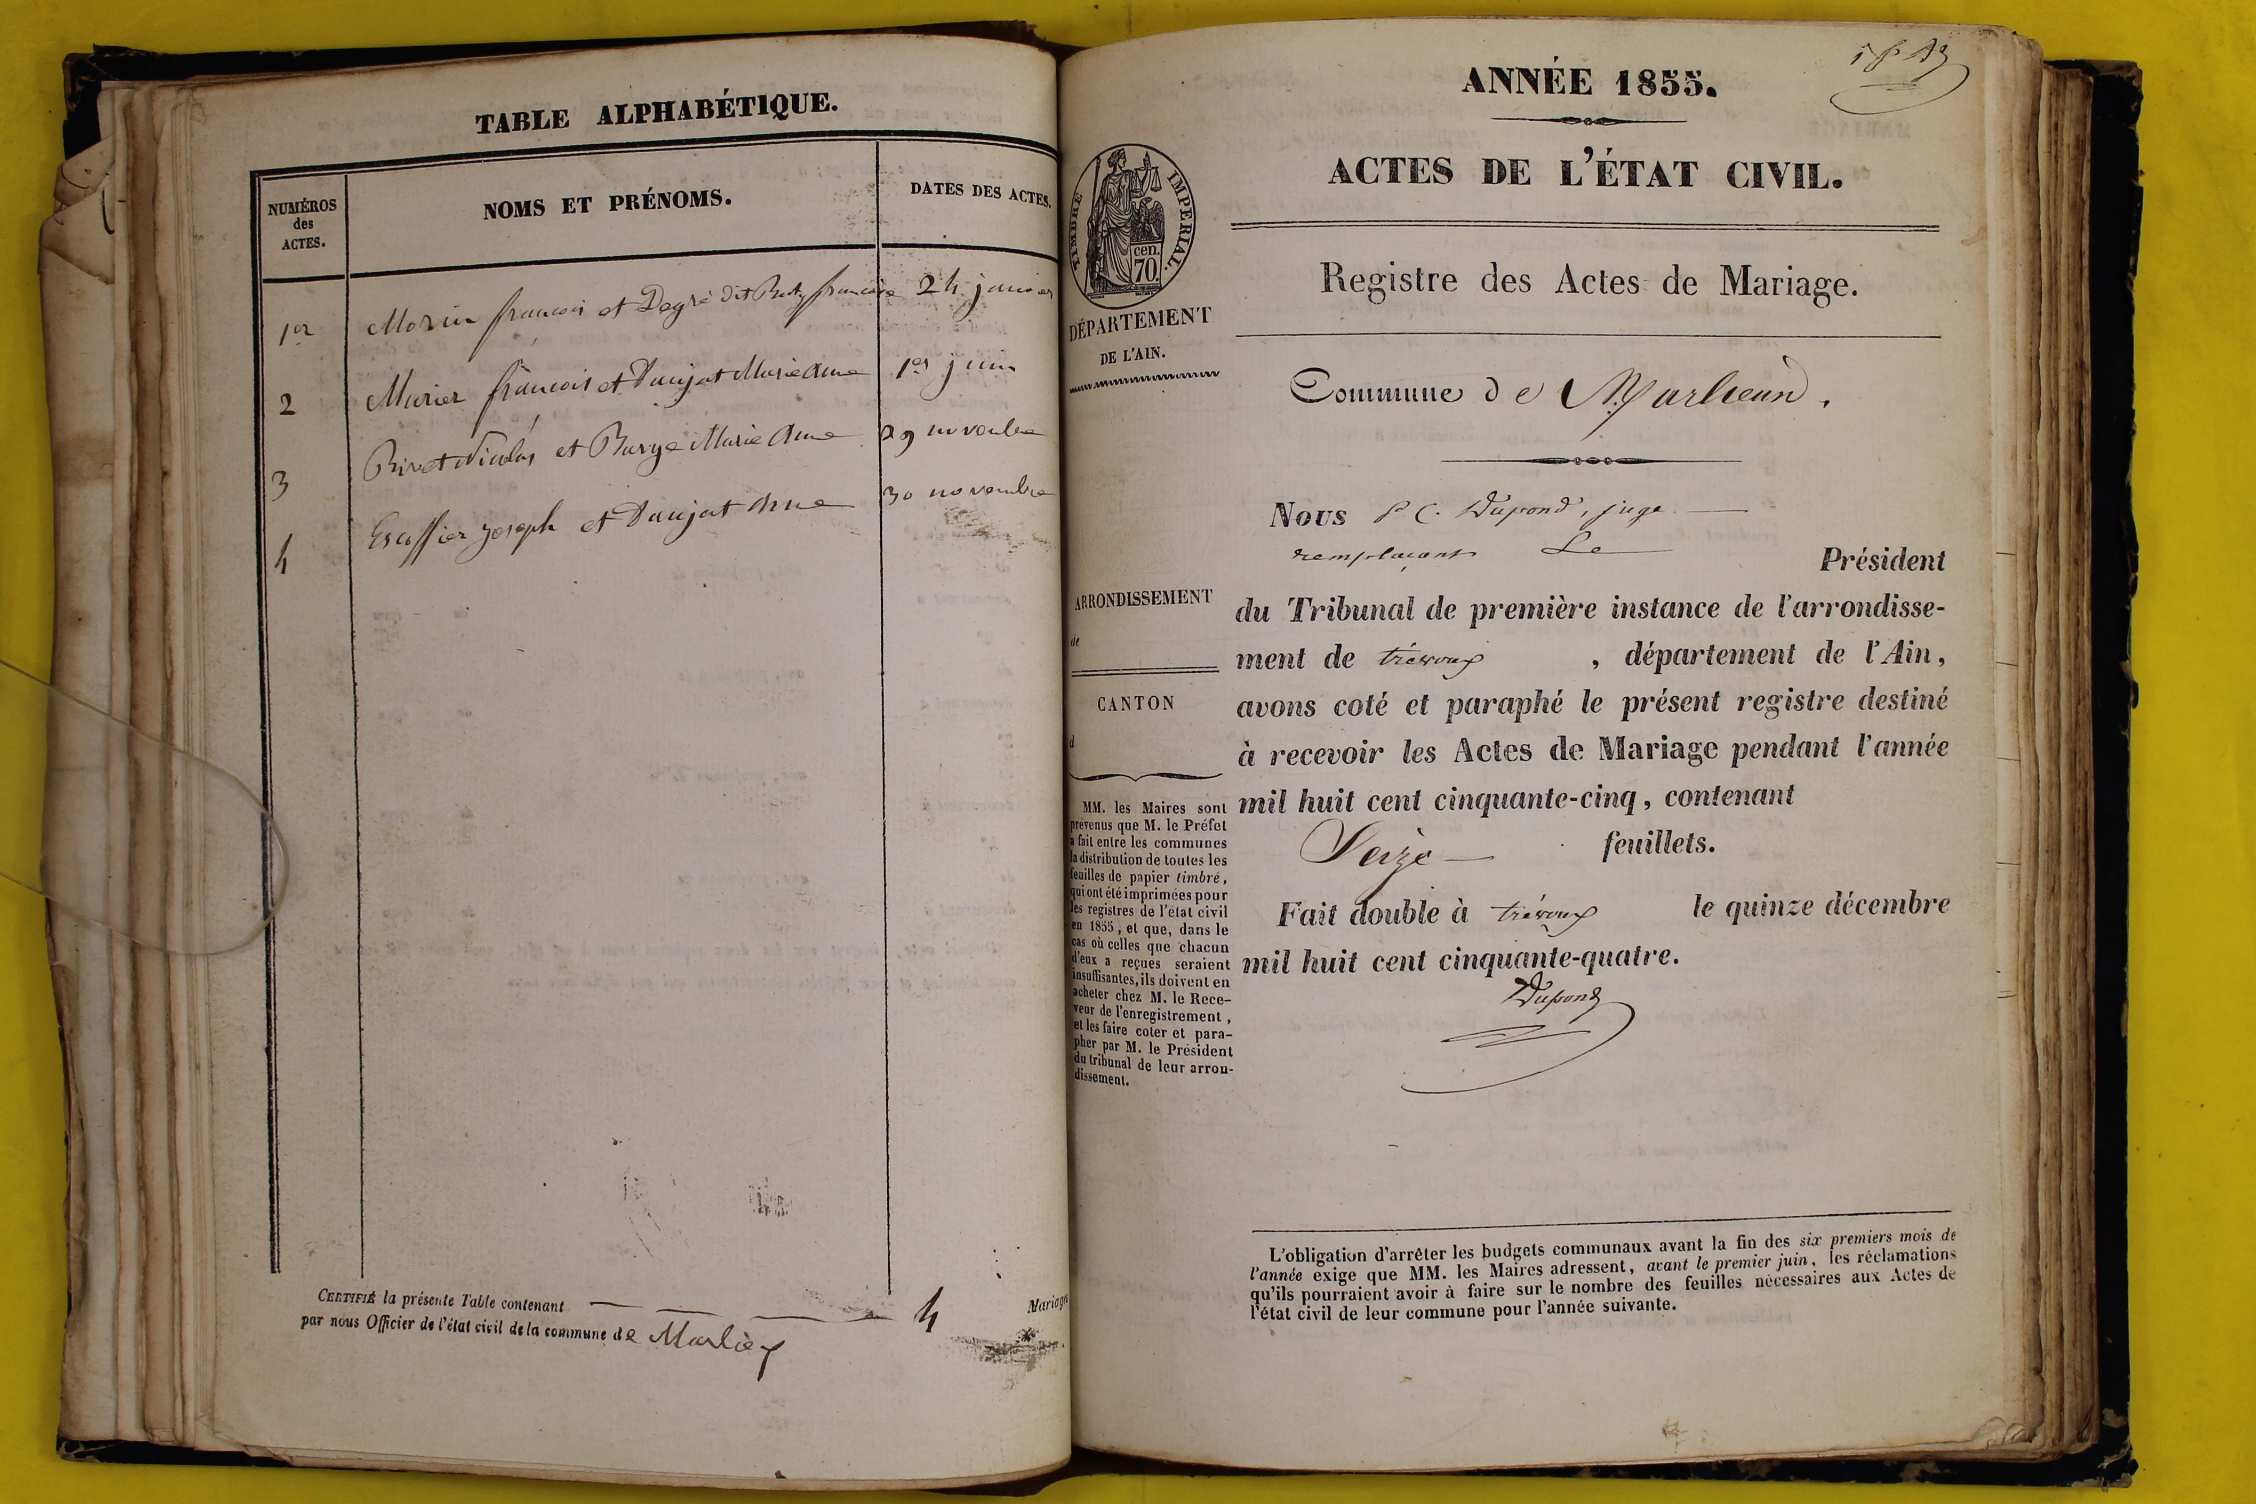 TABLE ALPHABÉTIQUE.
NUMÉROS
des
ACTES.
NOMS ET PRÉNOMS.
DATES DES ACTES.
1er Morin françois et Degré dit françoise 24 janvier
2 Murier françois et Daujat Marie Anne 1er juin
3 Rivet Nicolas et Barge Marie Anne 29 novembre
4 Escoffier Joseph et Daujat Anne 30 novembre
CERTIFIÉ la présente Table contenant 4 Mariages
par nous Officier de l'état civil de la commune de Marlieux
ANNÉE 1855.
ACTES DE L'ÉTAT CIVIL.
TIMBRE IMPERIAL.
cen.
70.
DÉPARTEMENT
DE L'AIN.
ARRONDISSEMENT
de
CANTON
d
MM. les Maires sont
prévenus que M. le Préfet
a fait entre les communes
la distribution de toutes les
feuilles de papier timbré,
qui ont été imprimées pour
les registres de l'état civil
en 1855, et que, dans le
cas où celles que chacun
d'eux a reçues seraient
insuffisantes, ils doivent en
acheter chez M. le Rece-
veur de l'enregistrement,
et les faire coter et para-
pher par M. le Président
du tribunal de leur arron-
dissement.
Registre des Actes de Mariage.
Commune de Marlieux.
Nous P C. Dupond, juge
remplaçant Le Président
du Tribunal de première instance de l'arrondisse-
ment de trévoux, département de l'Ain,
avons coté et paraphé le présent registre destiné
à recevoir les Actes de Mariage pendant l'année
mil huit cent cinquante-cinq, contenant
Seize feuillets.
Fait double à trévoux le quinze décembre
mil huit cent cinquante-quatre.
Dupond
L'obligation d'arrêter les budgets communaux avant la fin des six premiers mois de
l'année exige que MM. les Maires adressent, avant le premier juin, les réclamations
qu'ils pourraient avoir à faire sur le nombre des feuilles nécessaires aux Actes de
l'état civil de leur commune pour l'année suivante.